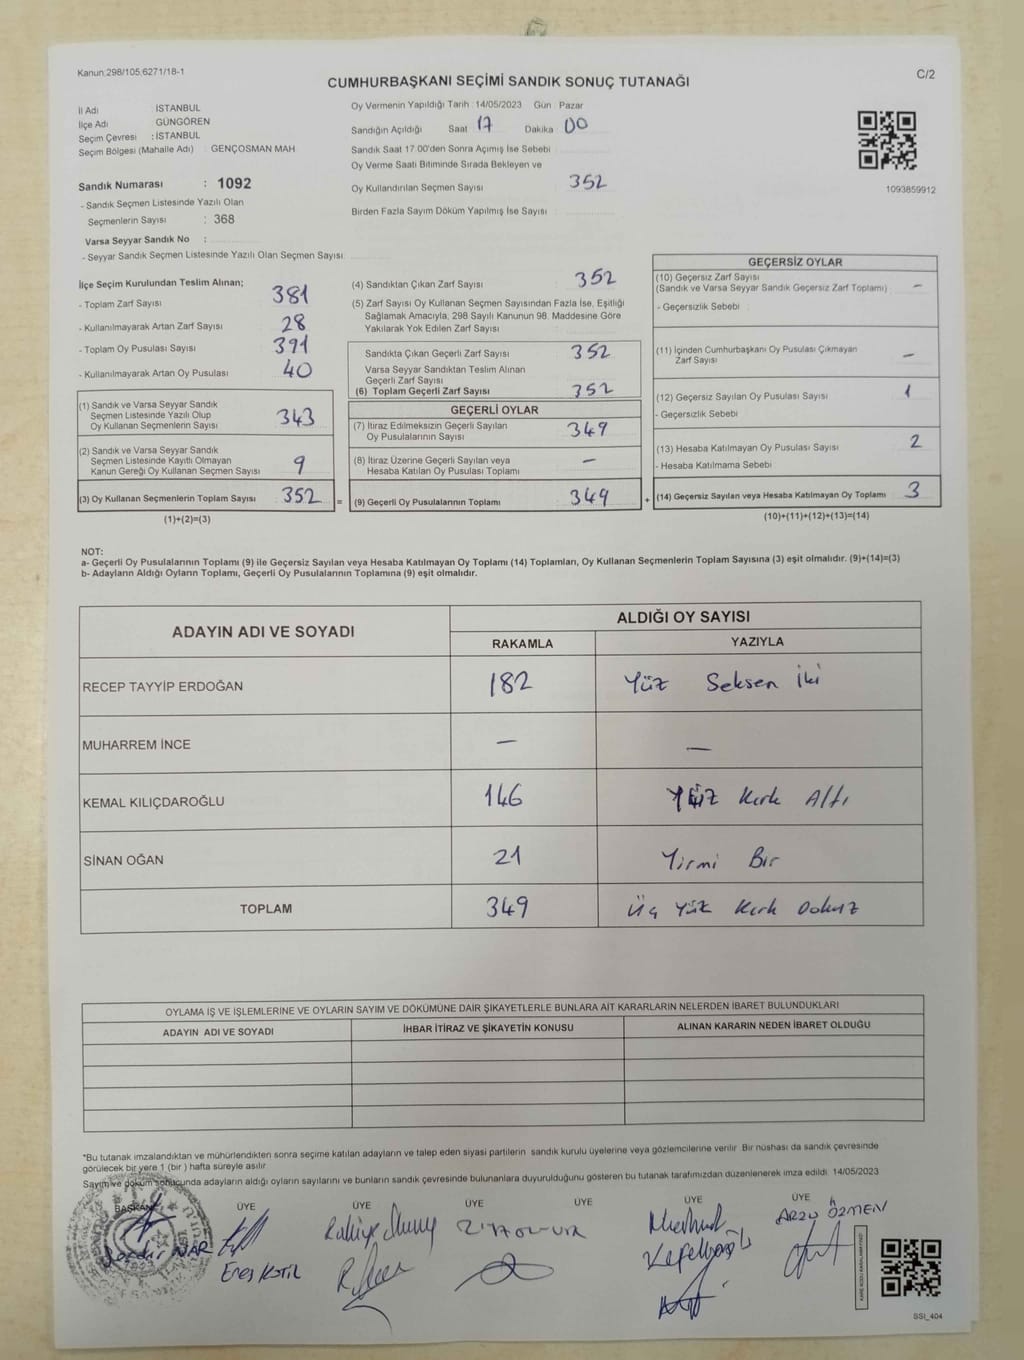 Kanun;298/105,6271/18-1
C/2
CUMHURBAŞKANI SEÇİMİ SANDIK SONUÇ TUTANAĞI
İl Adı : İSTANBUL
İlçe Adı : GÜNGÖREN
Seçim Çevresi : İSTANBUL
Seçim Bölgesi (Mahalle Adı) : GENÇOSMAN MAH
Sandık Numarası : 1092
- Sandık Seçmen Listesinde Yazılı Olan
Seçmenlerin Sayısı : 368
Varsa Seyyar Sandık No :
- Seyyar Sandık Seçmen Listesinde Yazılı Olan Seçmen Sayısı:
Oy Vermenin Yapıldığı Tarih : 14/05/2023 Gün : Pazar
Sandığın Açıldığı Saat 17 Dakika 00
Sandık Saat 17:00'den Sonra Açımış İse Sebebi :
Oy Verme Saati Bitiminde Sırada Bekleyen ve
Oy Kullandırılan Seçmen Sayısı 352
Birden Fazla Sayım Döküm Yapılmış İse Sayısı :
1093859912
İlçe Seçim Kurulundan Teslim Alınan;
- Toplam Zarf Sayısı 381
- Kullanılmayarak Artan Zarf Sayısı 28
- Toplam Oy Pusulası Sayısı 391
- Kullanılmayarak Artan Oy Pusulası 40
(1) Sandık ve Varsa Seyyar Sandık
Seçmen Listesinde Yazılı Olup
Oy Kullanan Seçmenlerin Sayısı 343
(2) Sandık ve Varsa Seyyar Sandık
Seçmen Listesinde Kayıtlı Olmayan
Kanun Gereği Oy Kullanan Seçmen Sayısı 9
(3) Oy Kullanan Seçmenlerin Toplam Sayısı 352 =
(1)+(2)=(3)
(4) Sandıktan Çıkan Zarf Sayısı 352
(5) Zarf Sayısı Oy Kullanan Seçmen Sayısından Fazla İse, Eşitliği
Sağlamak Amacıyla, 298 Sayılı Kanunun 98. Maddesine Göre
Yakılarak Yok Edilen Zarf Sayısı :
Sandıkta Çıkan Geçerli Zarf Sayısı 352
Varsa Seyyar Sandıktan Teslim Alınan
Geçerli Zarf Sayısı
(6) Toplam Geçerli Zarf Sayısı 352
GEÇERLİ OYLAR
(7) İtiraz Edilmeksizin Geçerli Sayılan
Oy Pusulalarının Sayısı 349
(8) İtiraz Üzerine Geçerli Sayılan veya
Hesaba Katılan Oy Pusulası Toplamı —
(9) Geçerli Oy Pusulalarının Toplamı 349 +
GEÇERSİZ OYLAR
(10) Geçersiz Zarf Sayısı
(Sandık ve Varsa Seyyar Sandık Geçersiz Zarf Toplamı) —
- Geçersizlik Sebebi :
(11) İçinden Cumhurbaşkanı Oy Pusulası Çıkmayan
Zarf Sayısı —
(12) Geçersiz Sayılan Oy Pusulası Sayısı 1
- Geçersizlik Sebebi
(13) Hesaba Katılmayan Oy Pusulası Sayısı 2
- Hesaba Katılmama Sebebi
(14) Geçersiz Sayılan veya Hesaba Katılmayan Oy Toplamı 3
(10)+(11)+(12)+(13)=(14)
NOT:
a- Geçerli Oy Pusulalarının Toplamı (9) ile Geçersiz Sayılan veya Hesaba Katılmayan Oy Toplamı (14) Toplamları, Oy Kullanan Seçmenlerin Toplam Sayısına (3) eşit olmalıdır. (9)+(14)=(3)
b- Adayların Aldığı Oyların Toplamı, Geçerli Oy Pusulalarının Toplamına (9) eşit olmalıdır.
ADAYIN ADI VE SOYADI ALDIĞI OY SAYISI
RAKAMLA YAZIYLA
RECEP TAYYİP ERDOĞAN 182 Yüz Seksen İki
MUHARREM İNCE — —
KEMAL KILIÇDAROĞLU 146 Yüz Kırk Altı
SİNAN OĞAN 21 Yirmi Bir
TOPLAM 349 Üç Yüz Kırk Dokuz
OYLAMA İŞ VE İŞLEMLERİNE VE OYLARIN SAYIM VE DÖKÜMÜNE DAİR ŞİKAYETLERLE BUNLARA AİT KARARLARIN NELERDEN İBARET BULUNDUKLARI
ADAYIN ADI VE SOYADI İHBAR İTİRAZ VE ŞİKAYETİN KONUSU ALINAN KARARIN NEDEN İBARET OLDUĞU
*Bu tutanak imzalandıktan ve mühürlendikten sonra seçime katılan adayların ve talep eden siyasi partilerin sandık kurulu üyelerine veya gözlemcilerine verilir. Bir nüshası da sandık çevresinde
görülecek bir yere 1 (bir ) hafta süreyle asılır.
Sayım ve döküm sonucunda adayların aldığı oyların sayılarını ve bunların sandık çevresinde bulunanlara duyurulduğunu gösteren bu tutanak tarafımızdan düzenlenerek imza edildi. 14/05/2023
BAŞKAN ÜYE ÜYE ÜYE ÜYE ÜYE ÜYE
Serdar NAR
Enes KOTİL
ARZU ÖZMEN
SSİ_404